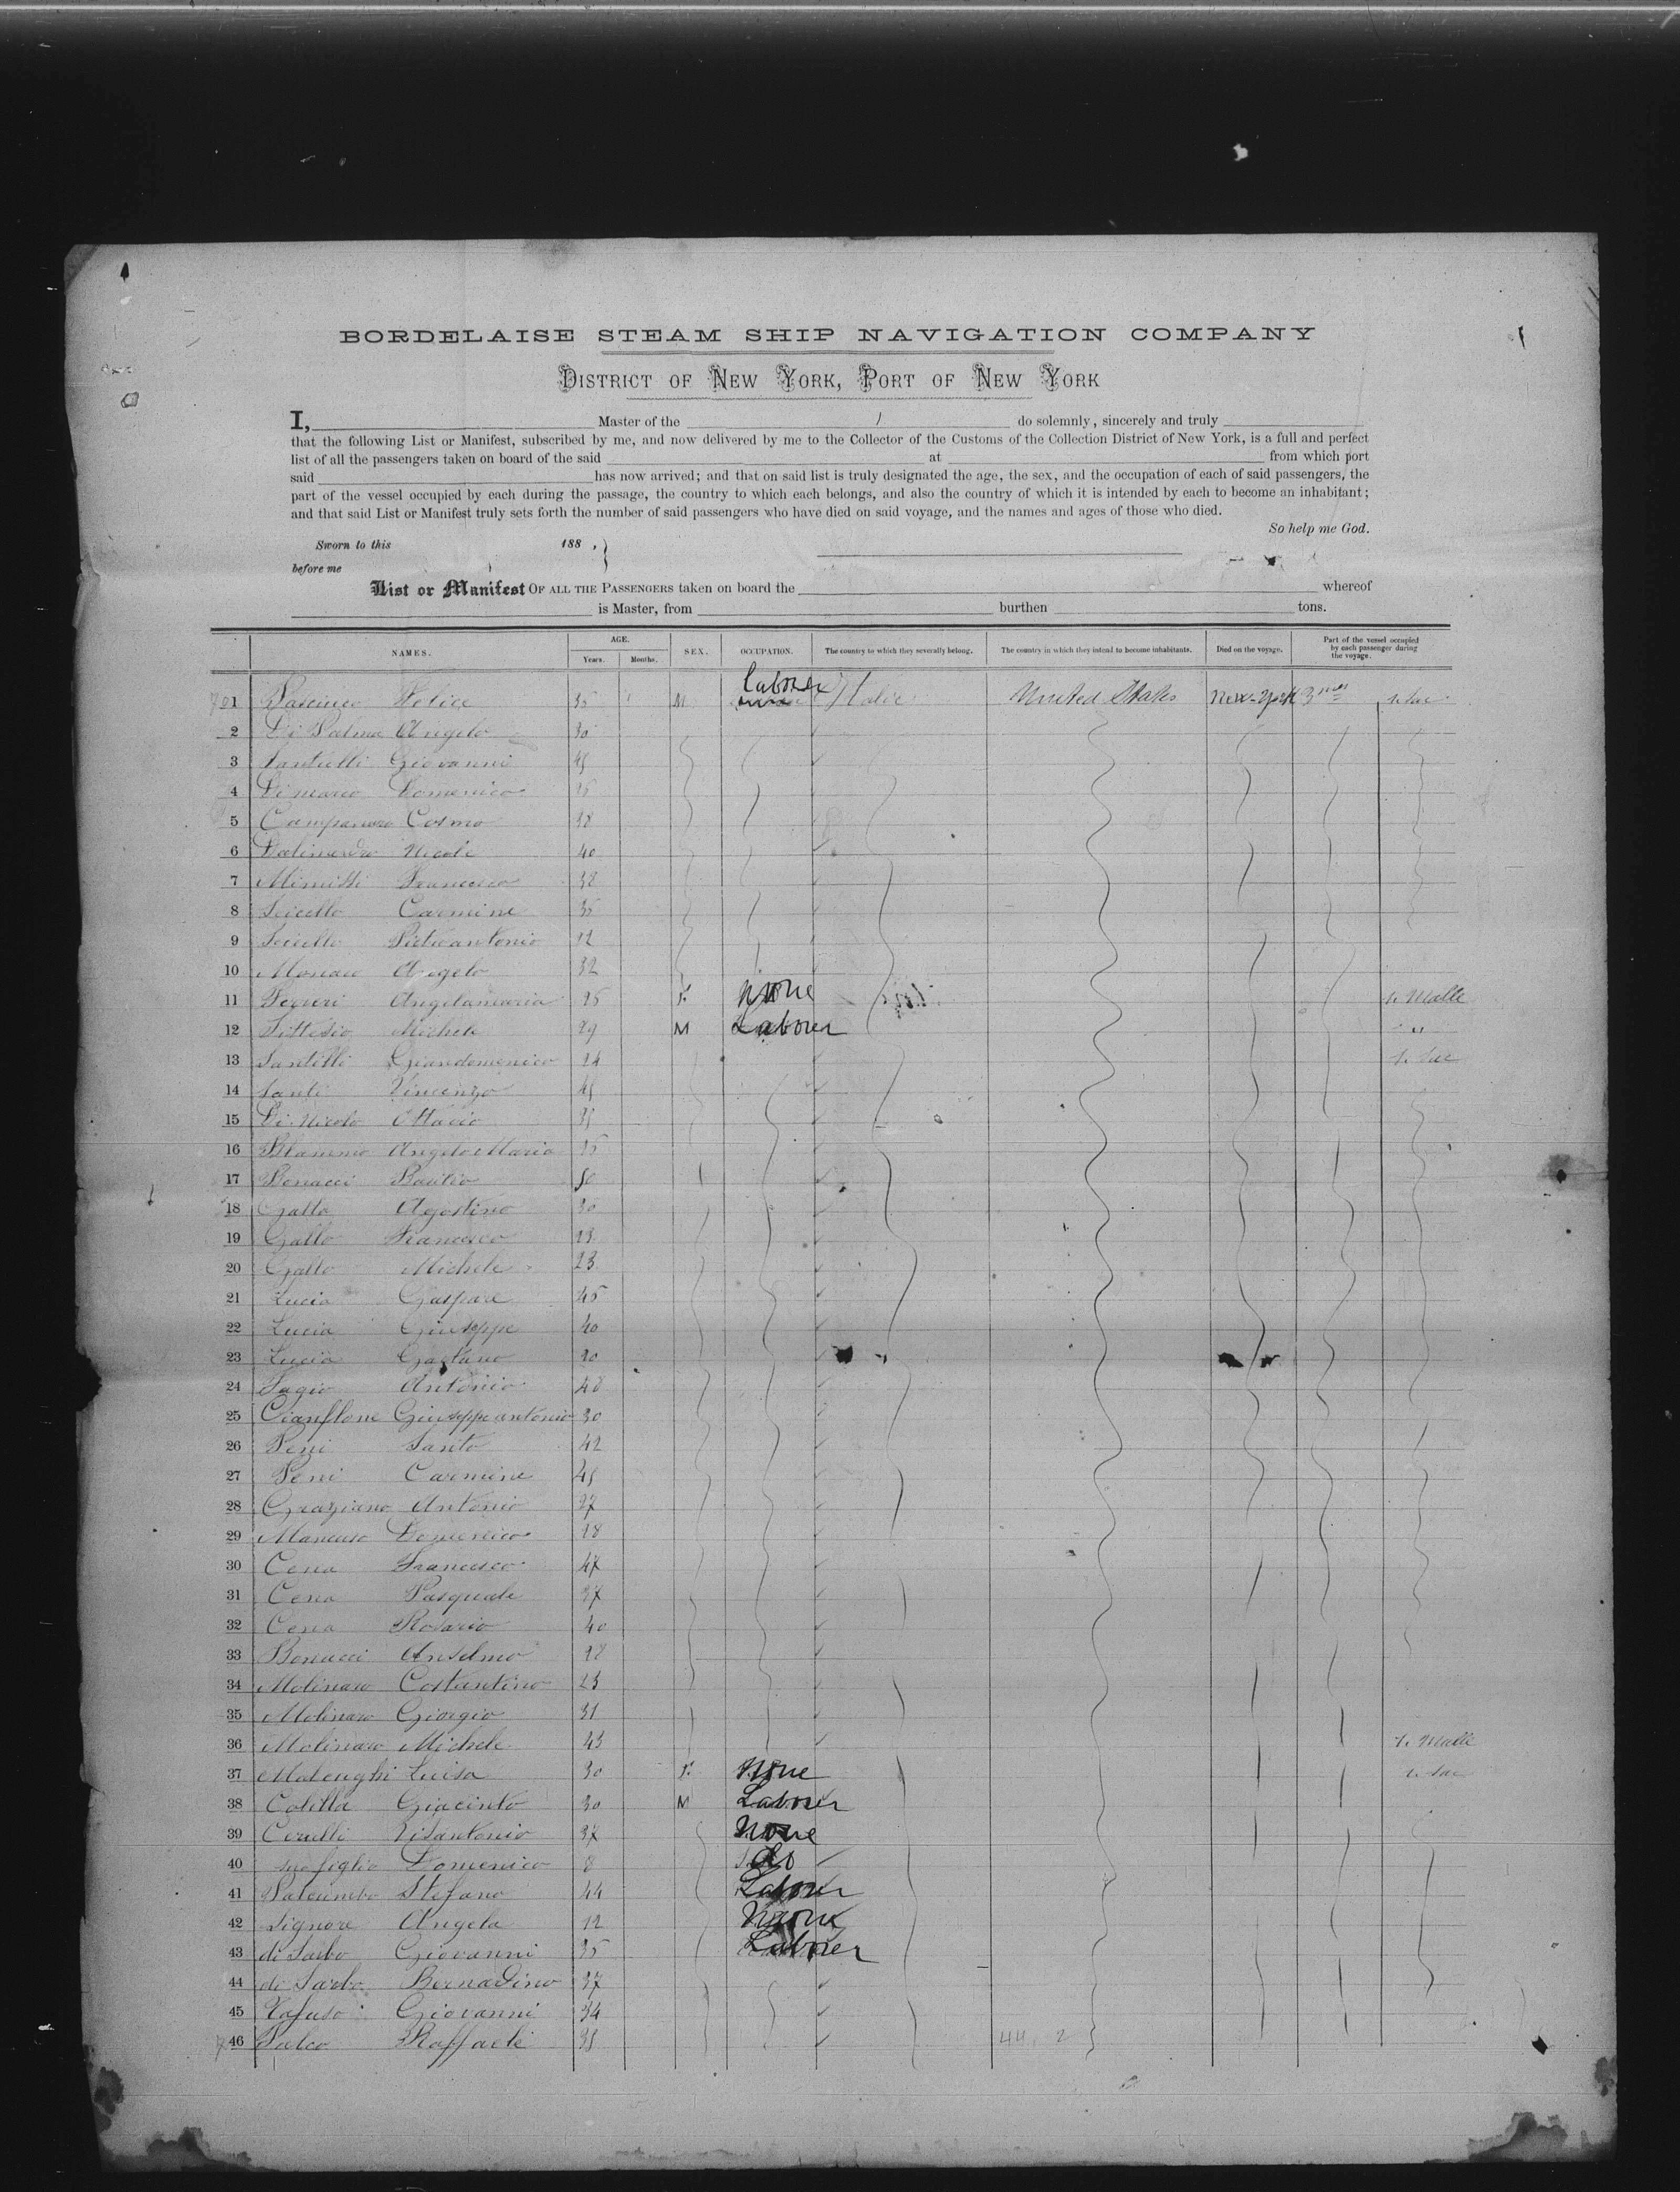 BORDELAISE STEAM SHIP NAVIGATION COMPANY
DISTRICT OF NEW YORK, PORT OF NEW YORK
I, Master of the do solemnly, sincerely and truly
that the following List or Manifest, subscribed by me, and now delivered by me to the Collector of the Customs of the Collection District of New York, is a full and perfect
list of all the passengers taken on board of the said at from which port
said has now arrived; and that on said list is truly designated the age, the sex, and the occupation of each of said passengers, the
part of the vessel occupied by each during the passage, the country to which each belongs, and also the country of which it is intended by each to become an inhabitant;
and that said List or Manifest truly sets forth the number of said passengers who have died on said voyage, and the names and ages of those who died.
So help me God.
Sworn to this 188 .
before me
List or Manifest OF ALL THE PASSENGERS taken on board the whereof
is Master, from burthen tons.
NAMES. AGE. Years. Months. SEX. OCCUPATION. The country to which they severally belong. The country in which they intend to become inhabitants. Died on the voyage. Part of the vessel occupied by each passenger during the voyage.
1 Felice 35 M Laborer Italie United States New-York 3 1 Sac
2 Di Palma Angelo 30
3 Giovanni 45
4 Dimarco Domenico
5 Campanaro Cosmo 38
6 Nicola 40
7 Francesco 38
8 Scicello Carmine 35
9 Scicello Pietrantonio
10 Monaco Angelo 32
11 Angelamaria F None 1 Malle
12 Michele M Laborer "
13 Santilli Giandomenico 1 Sac
14 Santi Vincenzo 45
15 Di Nicolo Ottavio
16 Angelo Maria
17 Bonacci Basilio 50
18 Gallo Agostino 30
19 Gallo Francesco
20 Gallo Michele 23
21 Lucia Gaspare 45
22 Lucia Giuseppe 40
23 Lucia Gaetano
24 Antonio 48
25 Cianflone Giuseppeantonio 30
26 Peni Santo 42
27 Peni Carmine
28 Graziano Antonio
29 Mancuso Domenico
30 Cena Francesco 47
31 Cena Pasquale
32 Cena Rosario 40
33 Bonacci Anselmo
34 Molinaro Costantino 23
35 Molinaro Giorgio 31
36 Molinaro Michele 43 1 Malle
37 Malenghi Luisa 30 F None 1 Sac
38 Colilla Giacinto 30 M Laborer
39 Cerulli Visantonio 37 None
40 suo figlio Domenico 8 do
41 Palcumbo Stefano 44 Laborer
42 Signore Angela 12 None
43 di Sarbo Giovanni 35 Laborer
44 di Sarbo Bernadino 37
45 Giovanni 34
46 Salco Raffaele 44. 2